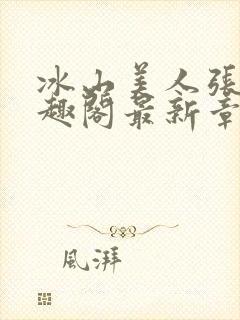 冰山美人張
趣閣最新章
風湃